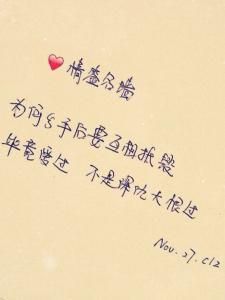 情签名墙
为何分手后要互相抵毁
毕竟爱过 不是深仇大恨过
Nov. 27. C12